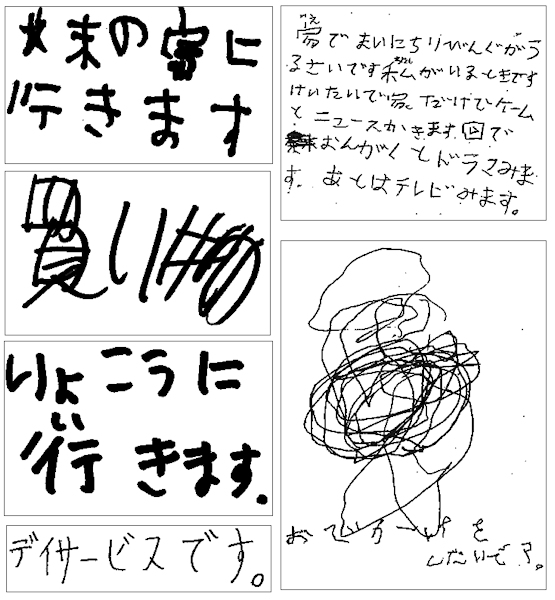 行きます
買い物
りょこうに
行きます。
デイサービスです。
でまいにちりびんぐがう
るさいです私がいるときです
けいたいで家。だけでゲーム
とニュースかきます。回で
おんがくとドラマみま
す。あとはテレビみます。
おでかけを
したいです。